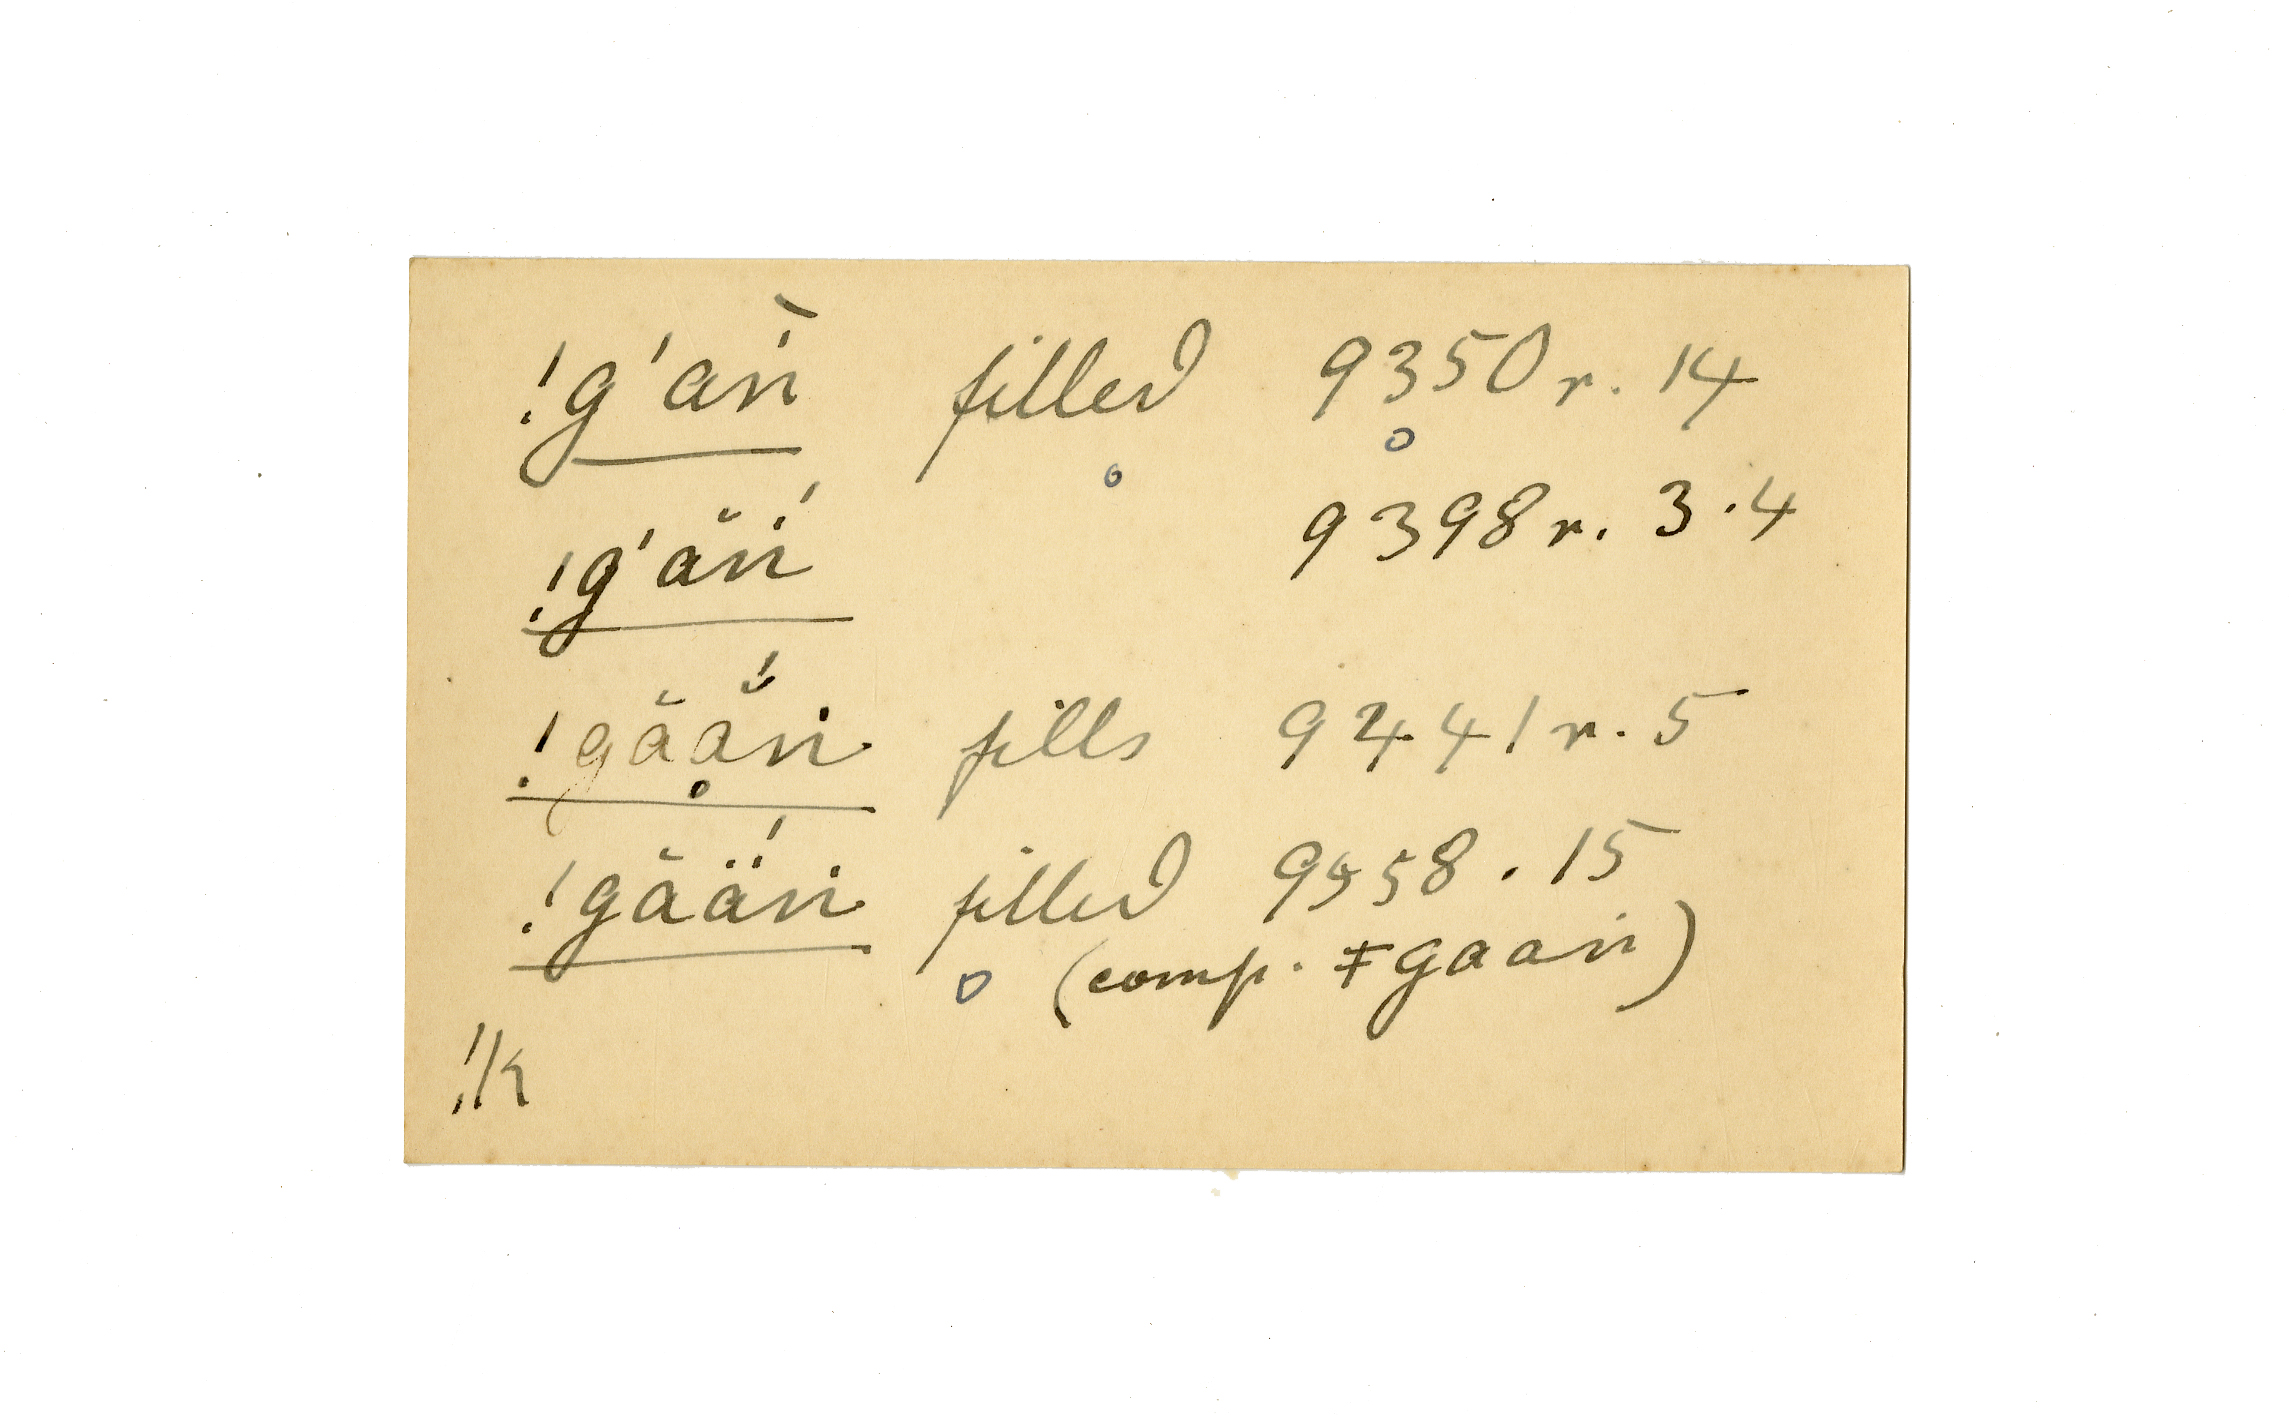 !g'ań̀ filled 9350 r. 14
!g'ăń 9398 r. 3.4
!găạ̊̆́n fills 9441 r. 5
!găä́n filled 9558 . 15
(comp. ǂgaan)
!k